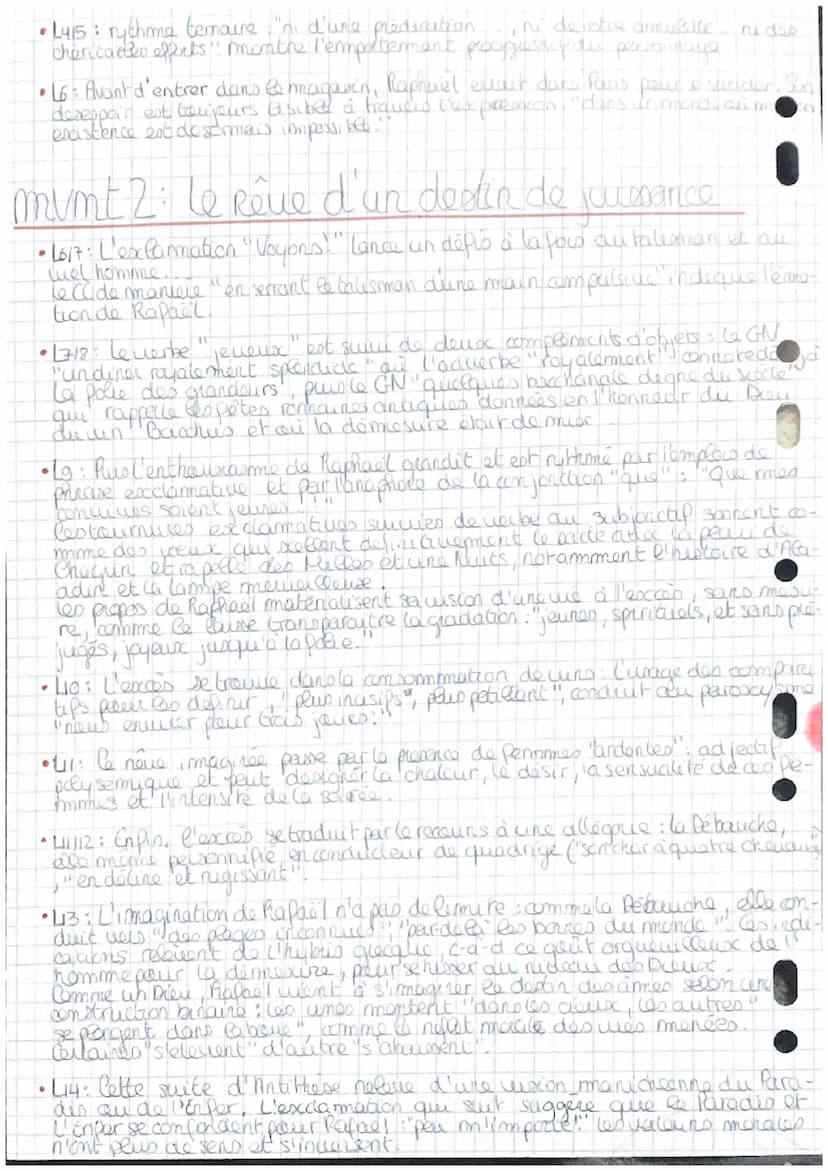 • L4/5 : rythme ternaire : "ni d'une prédication ..., ni de votre amulette ni due
charitables efforts" montre l'emportement progressif du personnage
• L6 : Avant d'entrer dans le magasin, Raphaël errait dans Paris pour se suicider. Son
desespoir est toujours lisible à travers l'expression : "dans un monde où mon
existence est désormais impossible."
mvmt 2 : le Rêve d'un destin de jouissance
• L6/7 : L'exclammation "Voyons !" lance un défis à la fois au talisman et au
vieil homme...
le CC de maniere "en serrant le talisman d'une main convulsive" indique l'émo-
tion de Rapaël.
• L7/8 : le verbe "je veux" est suivi de deux compléments d'objets : le GN
"un diner royalement splendide" où l'adverbe "royalement" connote déjà
la folie des grandeurs, puis le GN "quelques bacchanale digne du siècle"
qui rappelle les fêtes romaines antiques données en l'honneur du Dieu
du vin Bacchus et où la démesure était de mise.
• L9 : Puis l'enthousiasme de Raphaël grandit et est rythmé par l'emploi de
phrase exclammative et par l'anaphore de la conjonction "que" : "Que mes
convives soient jeunes...!"
Les tournures exclamatives suivies de verbe au subjonctif sonnent co-
mme des voeux qui scellent définitivement le pacte avec la peau de
Chagrin et rappelle des Milles et une Nuits, notammment l'histoire d'Ala-
adin et la lampe merveilleuse.
les propos de Raphael matérialisent sa vision d'une vie à l'excès, sans mesu-
re, comme le laisse transparaitre la gradation : "jeunes, spirituels, et sans pré-
jugés, joyeux jusqu'à la folie."
• L10 : L'excès se trouve dans la consommation de vins : l'usage des compara
tifs pour les définir, "plus incisifs", plus petillant", conduit au paroxysme
"nous enivrer pour trois jours."
• L11 : le rêve imaginée passe par la presence de femmmes "ardentes" : adjectif
polysemique et peut designer la chaleur, le désir, la sensualité de ces fe-
mmes et l'intensité de la soirée.
• L11/12 : Enfin, l'excès se traduit par le recours à une allégorie : la Débauche,
elle même personnifié en conducteur de quadrige ("son char à quatre chevaux
, "en délire" et rugissant".
• L13 : L'imagination de Rafaël n'a pas de limite : comme la Débauche, elle con-
duit vers "des plages inconnues", "par delà les bornes du monde". Ces indi-
cations relèvent de l'hybris grecque, c-à-d ce goût orgueilleux de l'
homme pour la démesure, pour se hisser au niveau des Dieux.
Comme un Dieu, Rafael vient à s'imaginer le destin des âmes selon une
construction binaire : les unes montent "dans les cieux, les autres"
se plongent dans la boue", comme le reflet morale des vies menées.
Certaines "s'elevent" d'autre "s'abaissent".
• L14 : Cette suite d'Antithèse relève d'une vision manicheenne du Para-
dis ou de l'Enfer. L'exclammation qui suit suggère que le Paradis et
L'Enfer se confondent pour Rafael : "peu m'importe !" les valeurs morales
n'ont plus de sens et s'inversent.